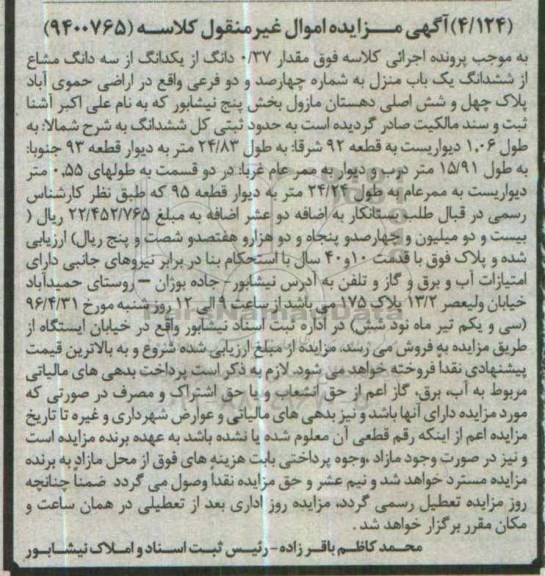 (۴/۱۲۴) آگهی مـــزایده اموال غیرمنقول کلاسه (۹۴۰۰۷۶۵)
به موجب پرونده اجرائی کلاسه فوق مقدار ۰/۳۷ دانگ از یکدانگ از سه دانگ مشاع
از ششدانگ یک باب منزل به شماره چهارصد و دو فرعی واقع در اراضی حموی آباد
پلاک چهل و شش اصلی دهستان مازول بخش پنج نیشابور که به نام علی اکبر آشنا
ثبت و سند مالکیت صادر گردیده است به حدود ثبتی کل ششدانگ به شرح شمالا: به
طول ۱.۰۶ دیواریست به قطعه ۹۲ شرقا: به طول ۲۴/۸۳ متر به دیوار قطعه ۹۳ جنوبا:
به طول ۱۵/۹۱ متر درب و دیوار به ممر عام غربا: در دو قسمت به طولهای ۰.۵۵ متر
دیواریست به ممرعام به طول ۲۴/۲۴ متر به دیوار قطعه ۹۵ که طبق نظر کارشناس
رسمی در قبال طلب بستانکار به اضافه دو عشر اضافه به مبلغ ۲۲/۴۵۲/۷۶۵ ریال (
بیست و دو میلیون و چهارصدو پنجاه و دو هزارو هفتصدو شصت و پنج ریال) ارزیابی
شده و پلاک فوق با قدمت ۱۰و۴۰ سال با استحکام بنا در برابر نیروهای جانبی دارای
امتیازات آب و برق و گاز و تلفن به آدرس نیشابور- جاده بوژان – روستای حمیدآباد
خیابان ولیعصر ۱۳/۲ پلاک ۱۷۵ می باشد از ساعت ۹ الی ۱۲ روز شنبه مورخ ۹۶/۴/۳۱
(سی و یکم تیر ماه نود شش) در اداره ثبت اسناد نیشابور واقع در خیابان ایستگاه از
طریق مزایده به فروش می رسد، مزایده از مبلغ ارزیابی شده شروع و به بالاترین قیمت
پیشنهادی نقدا فروخته خواهد می شود. لازم به ذکر است پرداخت بدهی های مالیاتی
مربوط به آب، برق، گاز اعم از حق انشعاب و یا حق اشتراک و مصرف در صورتی که
مورد مزایده دارای آنها باشد و نیز بدهی های مالیاتی و عوارض شهرداری و غیره تا تاریخ
مزایده اعم از اینکه رقم قطعی آن معلوم شده یا نشده باشد به عهده برنده مزایده است
و نیز در صورت وجود مازاد ،وجوه پرداختی بابت هزینه های فوق از محل مازاد به برنده
مزایده مسترد خواهد شد و نیم عشر و حق مزایده نقداً وصول می گردد ضمناً چنانچه
روز مزایده تعطیل رسمی گردد، مزایده روز اداری بعد از تعطیلی در همان ساعت و
مکان مقرر برگزار خواهد شد.
محمد کاظم باقر زاده - رئیس ثبت اسناد و املاک نیشابور